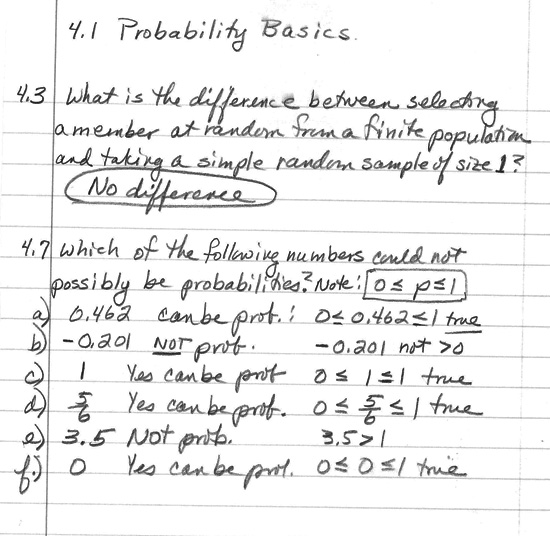 4.1 Probability Basics.
4.3 What is the difference between selecting
a member at random from a finite population
and taking a simple random sample of size 1?
No difference
4.7 Which of the following numbers could not
possibly be probabilities? Note: 0 ≤ p ≤ 1
a) 0.462 can be prob.: 0 ≤ 0.462 ≤ 1 true
b) -0.201 NOT prob. -0.201 not > 0
c) 1 Yes can be prob 0 ≤ 1 ≤ 1 true
d) 5/6 Yes can be prob. 0 ≤ 5/6 ≤ 1 true
e) 3.5 Not prob. 3.5 > 1
f.) 0 Yes can be prob. 0 ≤ 0 ≤ 1 true